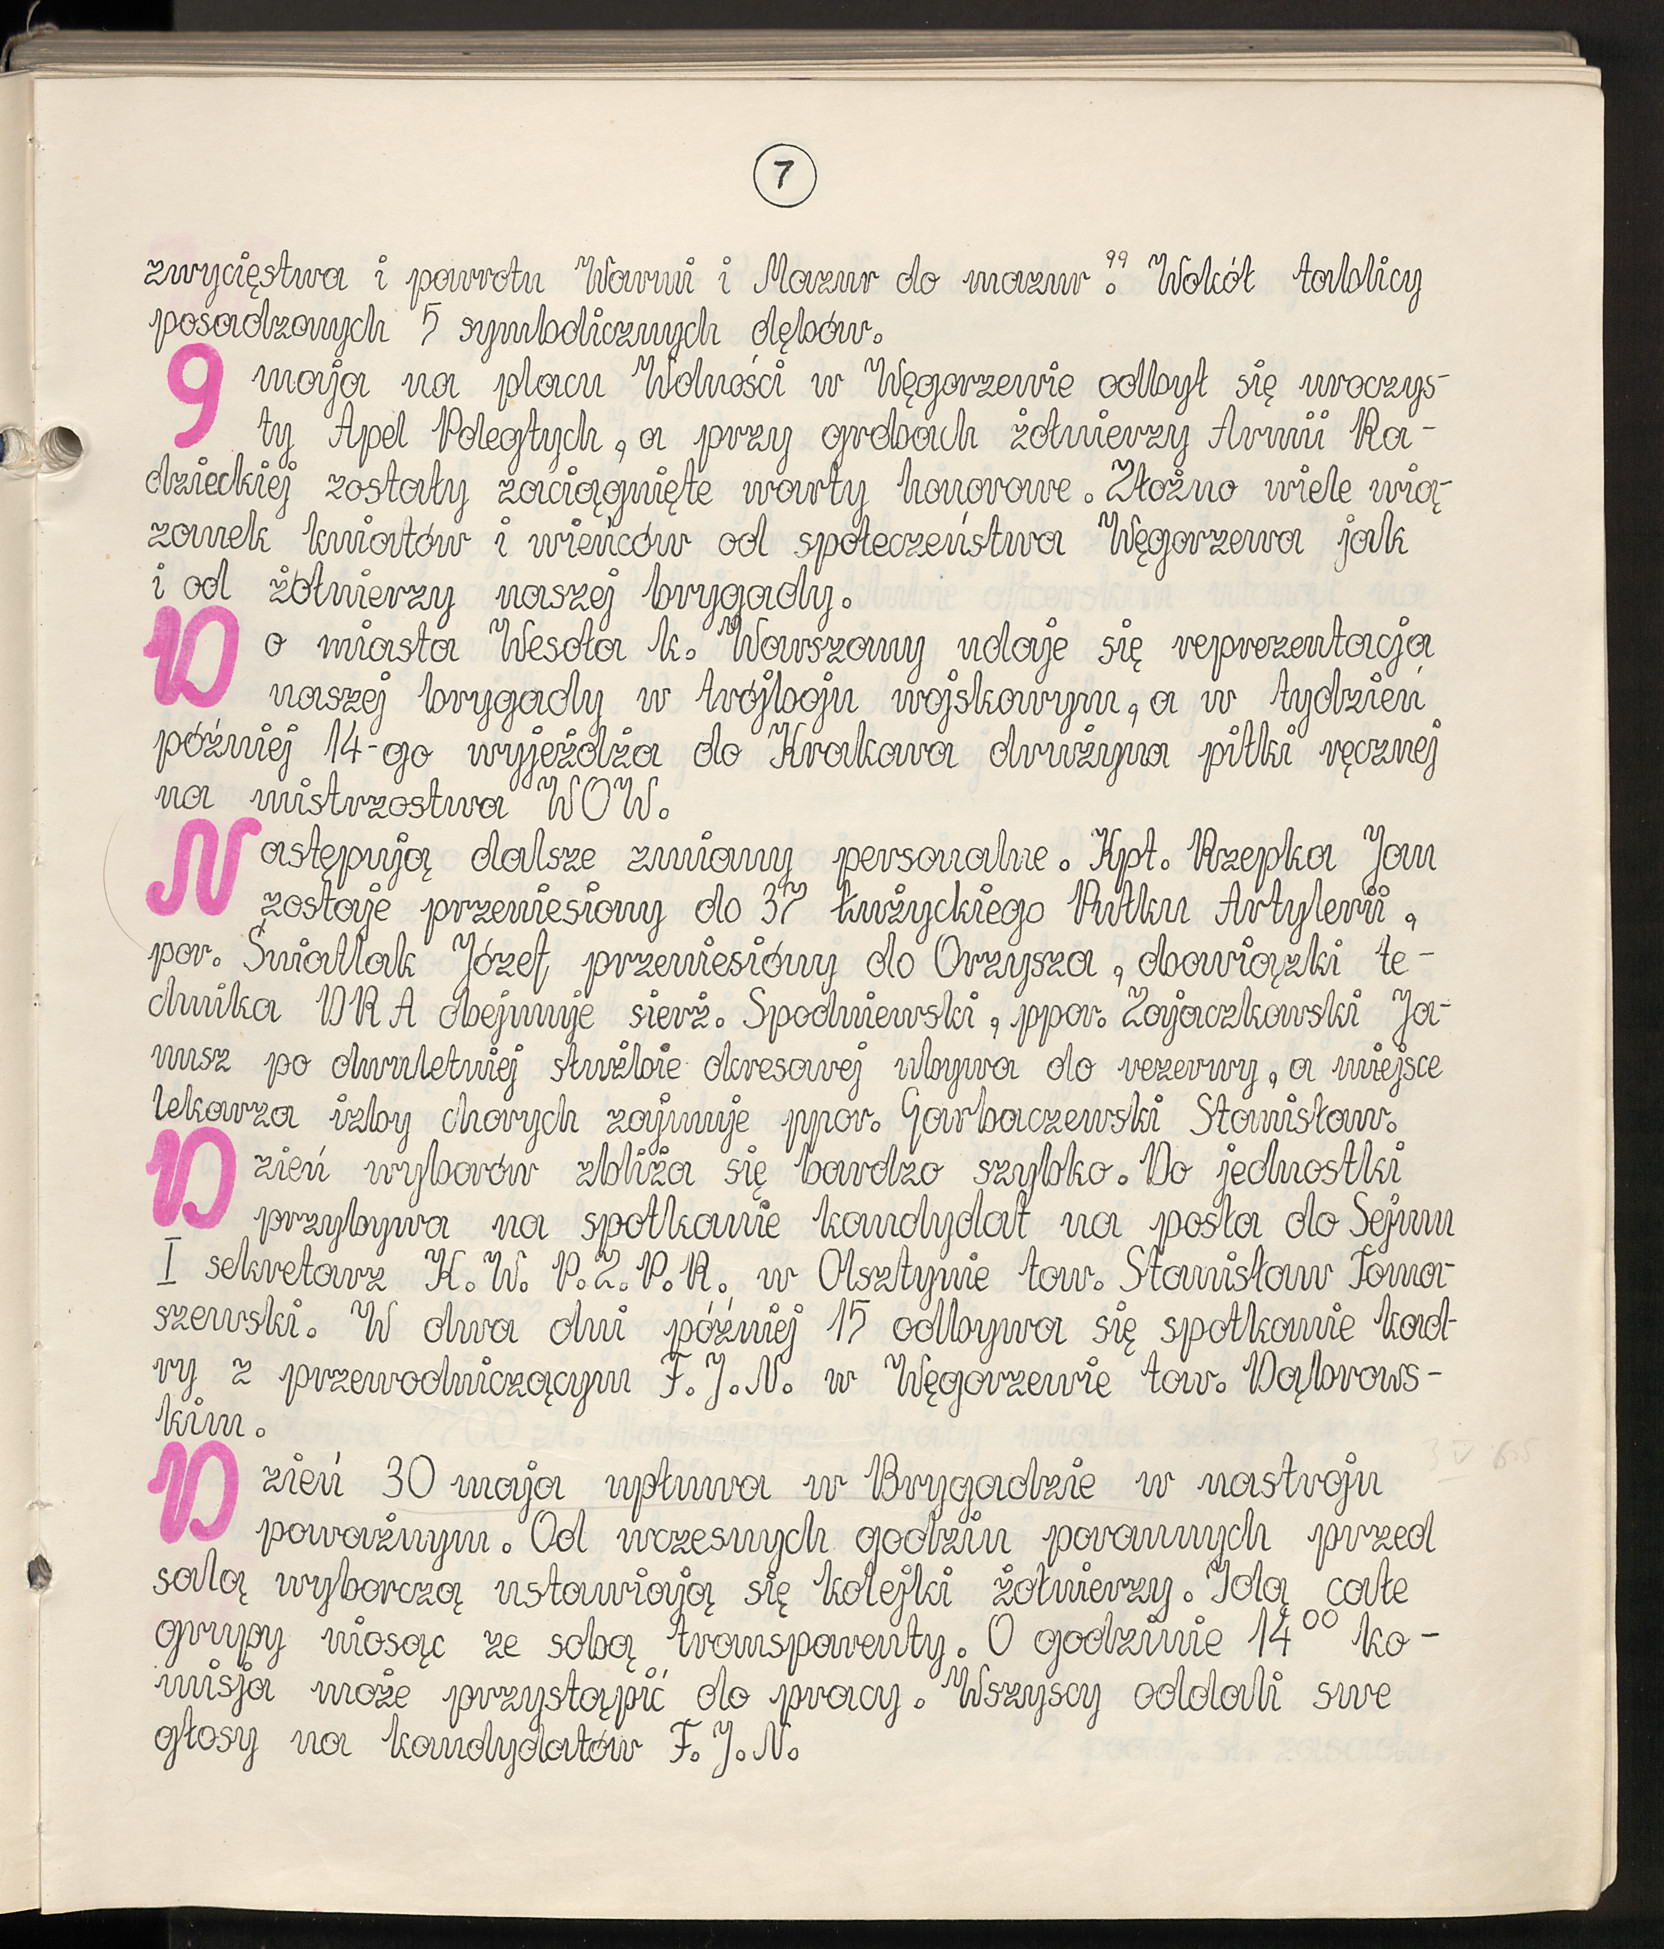 7
zwycięstwa i powrotu Warmi i Mazur do mazur". Wokół tablicy
posadzonych 5 symbolicznych dębów.
9 maja na placu Wolności w Węgorzewie odbył się uroczys-
ty Apel Poległych, a przy grobach żołnierzy Armii Ra-
dzieckiej zostały zaciągnięte warty honorowe. Złożno wiele wią-
zanek kwiatów i wieńców od społeczeństwa Węgorzewa jak
i od żołnierzy naszej brygady.
Do miasta Wesoła k. Warszawy udaje się reprezentacja
naszej brygady w trójboju wojskowym, a w tydzień
później 14-go wyjeżdża do Krakowa drużyna piłki ręcznej
na mistrzostwa WOW.
Następują dalsze zmiany personalne. Kpt. Rzepka Jan
zostaje przeniesiony do 37 Łużyckiego Pułku Artylerii,
por. Światlak Józef, przeniesióny do Orzysza, obowiązki te-
chnika DRA obejmuje sierż. Spodniewski, ppor. Zajaczkowski Ja-
nusz po dwuletniej służbie okresowej ubywa do rezerwy, a miejsce
lekarza izby chorych zajmuje ppor. Garbaczewski Stanisław.
Dzień wyborów zbliża się bardzo szybko. Do jednostki
przybywa na spotkanie kandydat na posła do Sejmu
I sekretarz K.W. P.Z.P.R. w Olsztynie tow. Stanisław Toma-
szewski. W dwa dni później 15 odbywa się spotkanie kad-
ry z przewodniczącym F.J.N. w Węgorzewie tow. Dąbrows-
kim.
Dzień 30 maja upływa w Brygadzie w nastroju
poważnym. Od wczesnych godzin porannych przed
salą wyborczą ustawiają się kolejki żołnierzy. Idą całe
grupy niosąc ze sobą transparenty. O godzinie 14⁰⁰ ko-
misja może przystąpić do pracy. Wszyscy oddali swe
głosy na kandydatów F.J.N.